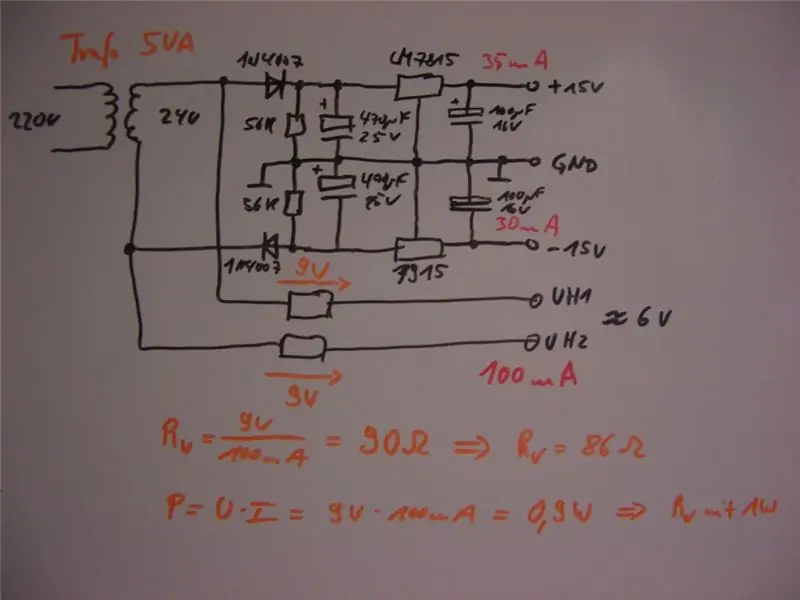 Trafo 5VA
1N4007
LM7815
35mA
+15V
220V
24V
56K
470µF
25V
100µF
16V
GND
56K
470µF
25V
100µF
16V
30mA
-15V
1N4007
7915
9V
VH1
≈ 6V
VH2
9V
100mA
Rv = 9V / 100mA = 90Ω ⇒ Rv = 86Ω
P = U · I = 9V · 100mA = 0,9W ⇒ Rv mit 1W